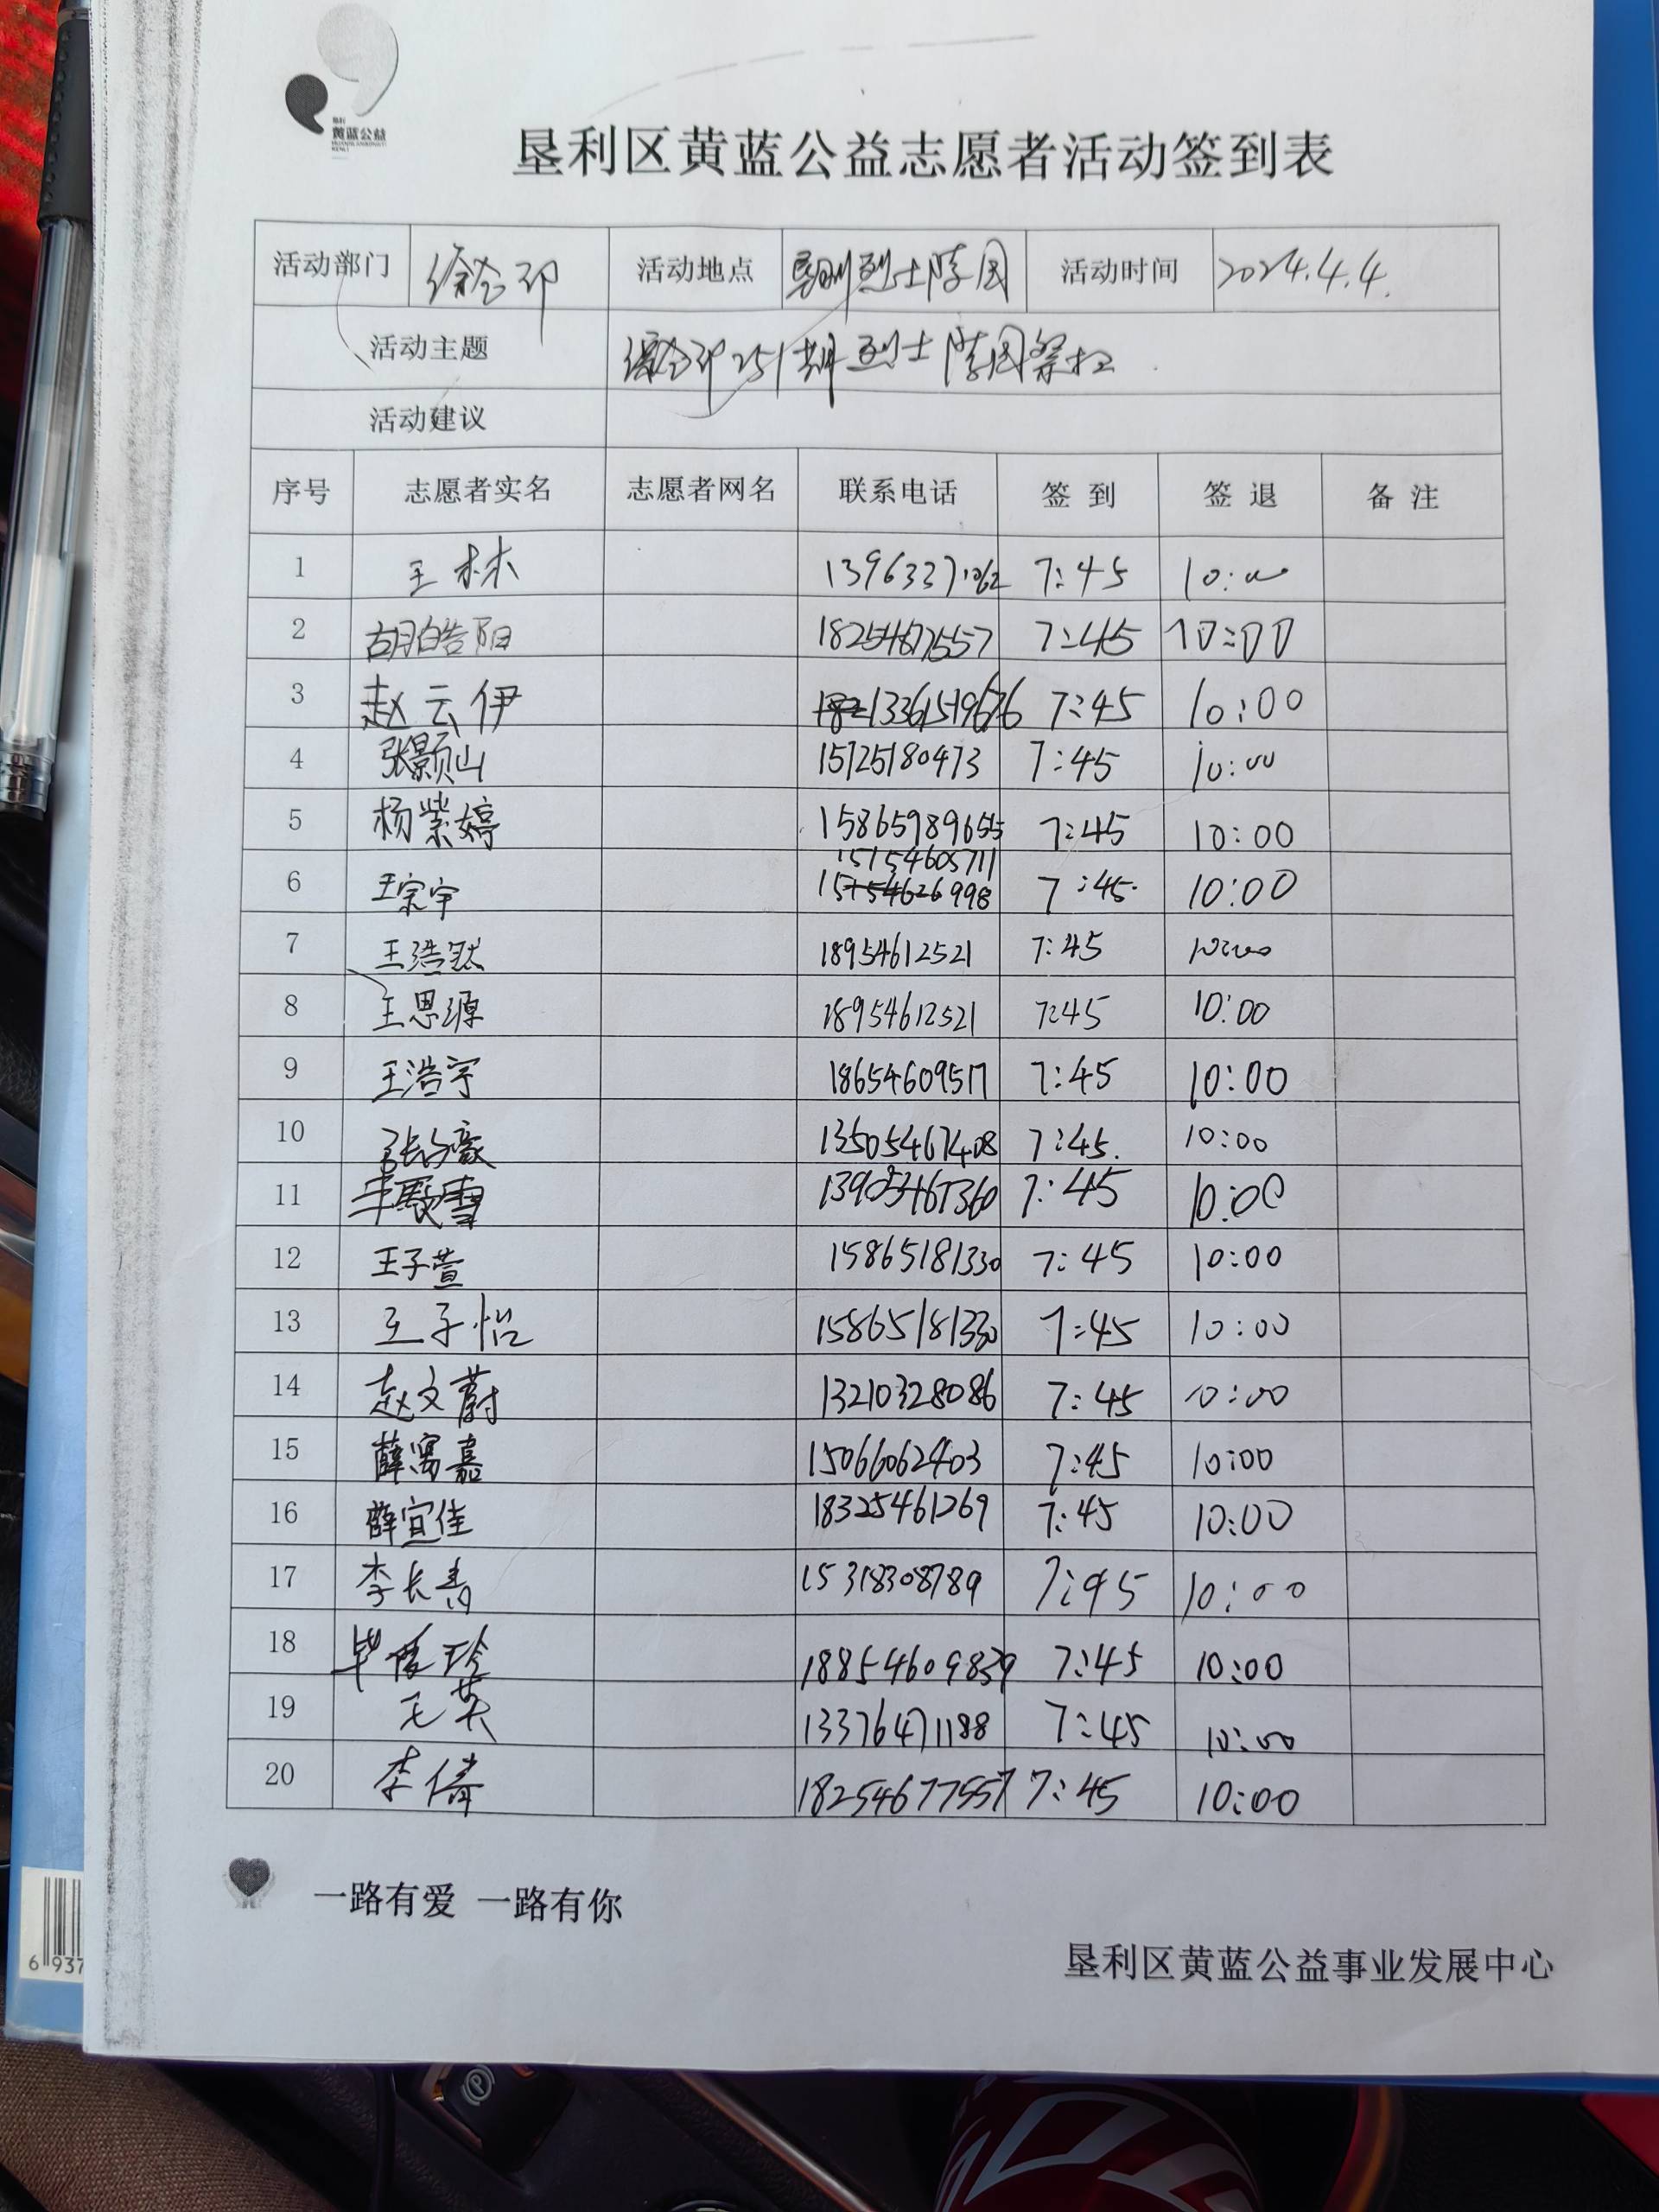 黄蓝公益
垦利区黄蓝公益志愿者活动签到表
活动部门 综合部 活动地点 垦利烈士陵园 活动时间 2024.4.4.
活动主题 综合部251期烈士陵园祭扫
活动建议
序号 志愿者实名 志愿者网名 联系电话 签到 签退 备注
1 王林 13963371062 7:45 10:00
2 胡皓阳 18254677557 7:45 10:00
3 赵云伊 13361519676 7:45 10:00
4 张颢山 15725180473 7:45 10:00
5 杨紫婷 15865989655 7:45 10:00
15154605711
6 王宗宇 7:45 10:00
7 王浩 18954612521 7:45 10:00
8 王思源 18954612521 7:45 10:00
9 王浩宇 18654609517 7:45 10:00
10 13505467408 7:45 10:00
11 7:45 10:00
12 王子萱 15865181330 7:45 10:00
13 王子怡 15865181330 7:45 10:00
14 赵文蔚 13210328086 7:45 10:00
15 薛寓嘉 15066062403 7:45 10:00
16 薛宜佳 18325461269 7:45 10:00
17 李长青 15318308789 7:45 10:00
18 毕俊玲 18854609839 7:45 10:00
19 王英 13376471188 7:45 10:00
20 李倩 18254677557 7:45 10:00
一路有爱 一路有你
垦利区黄蓝公益事业发展中心
6 937